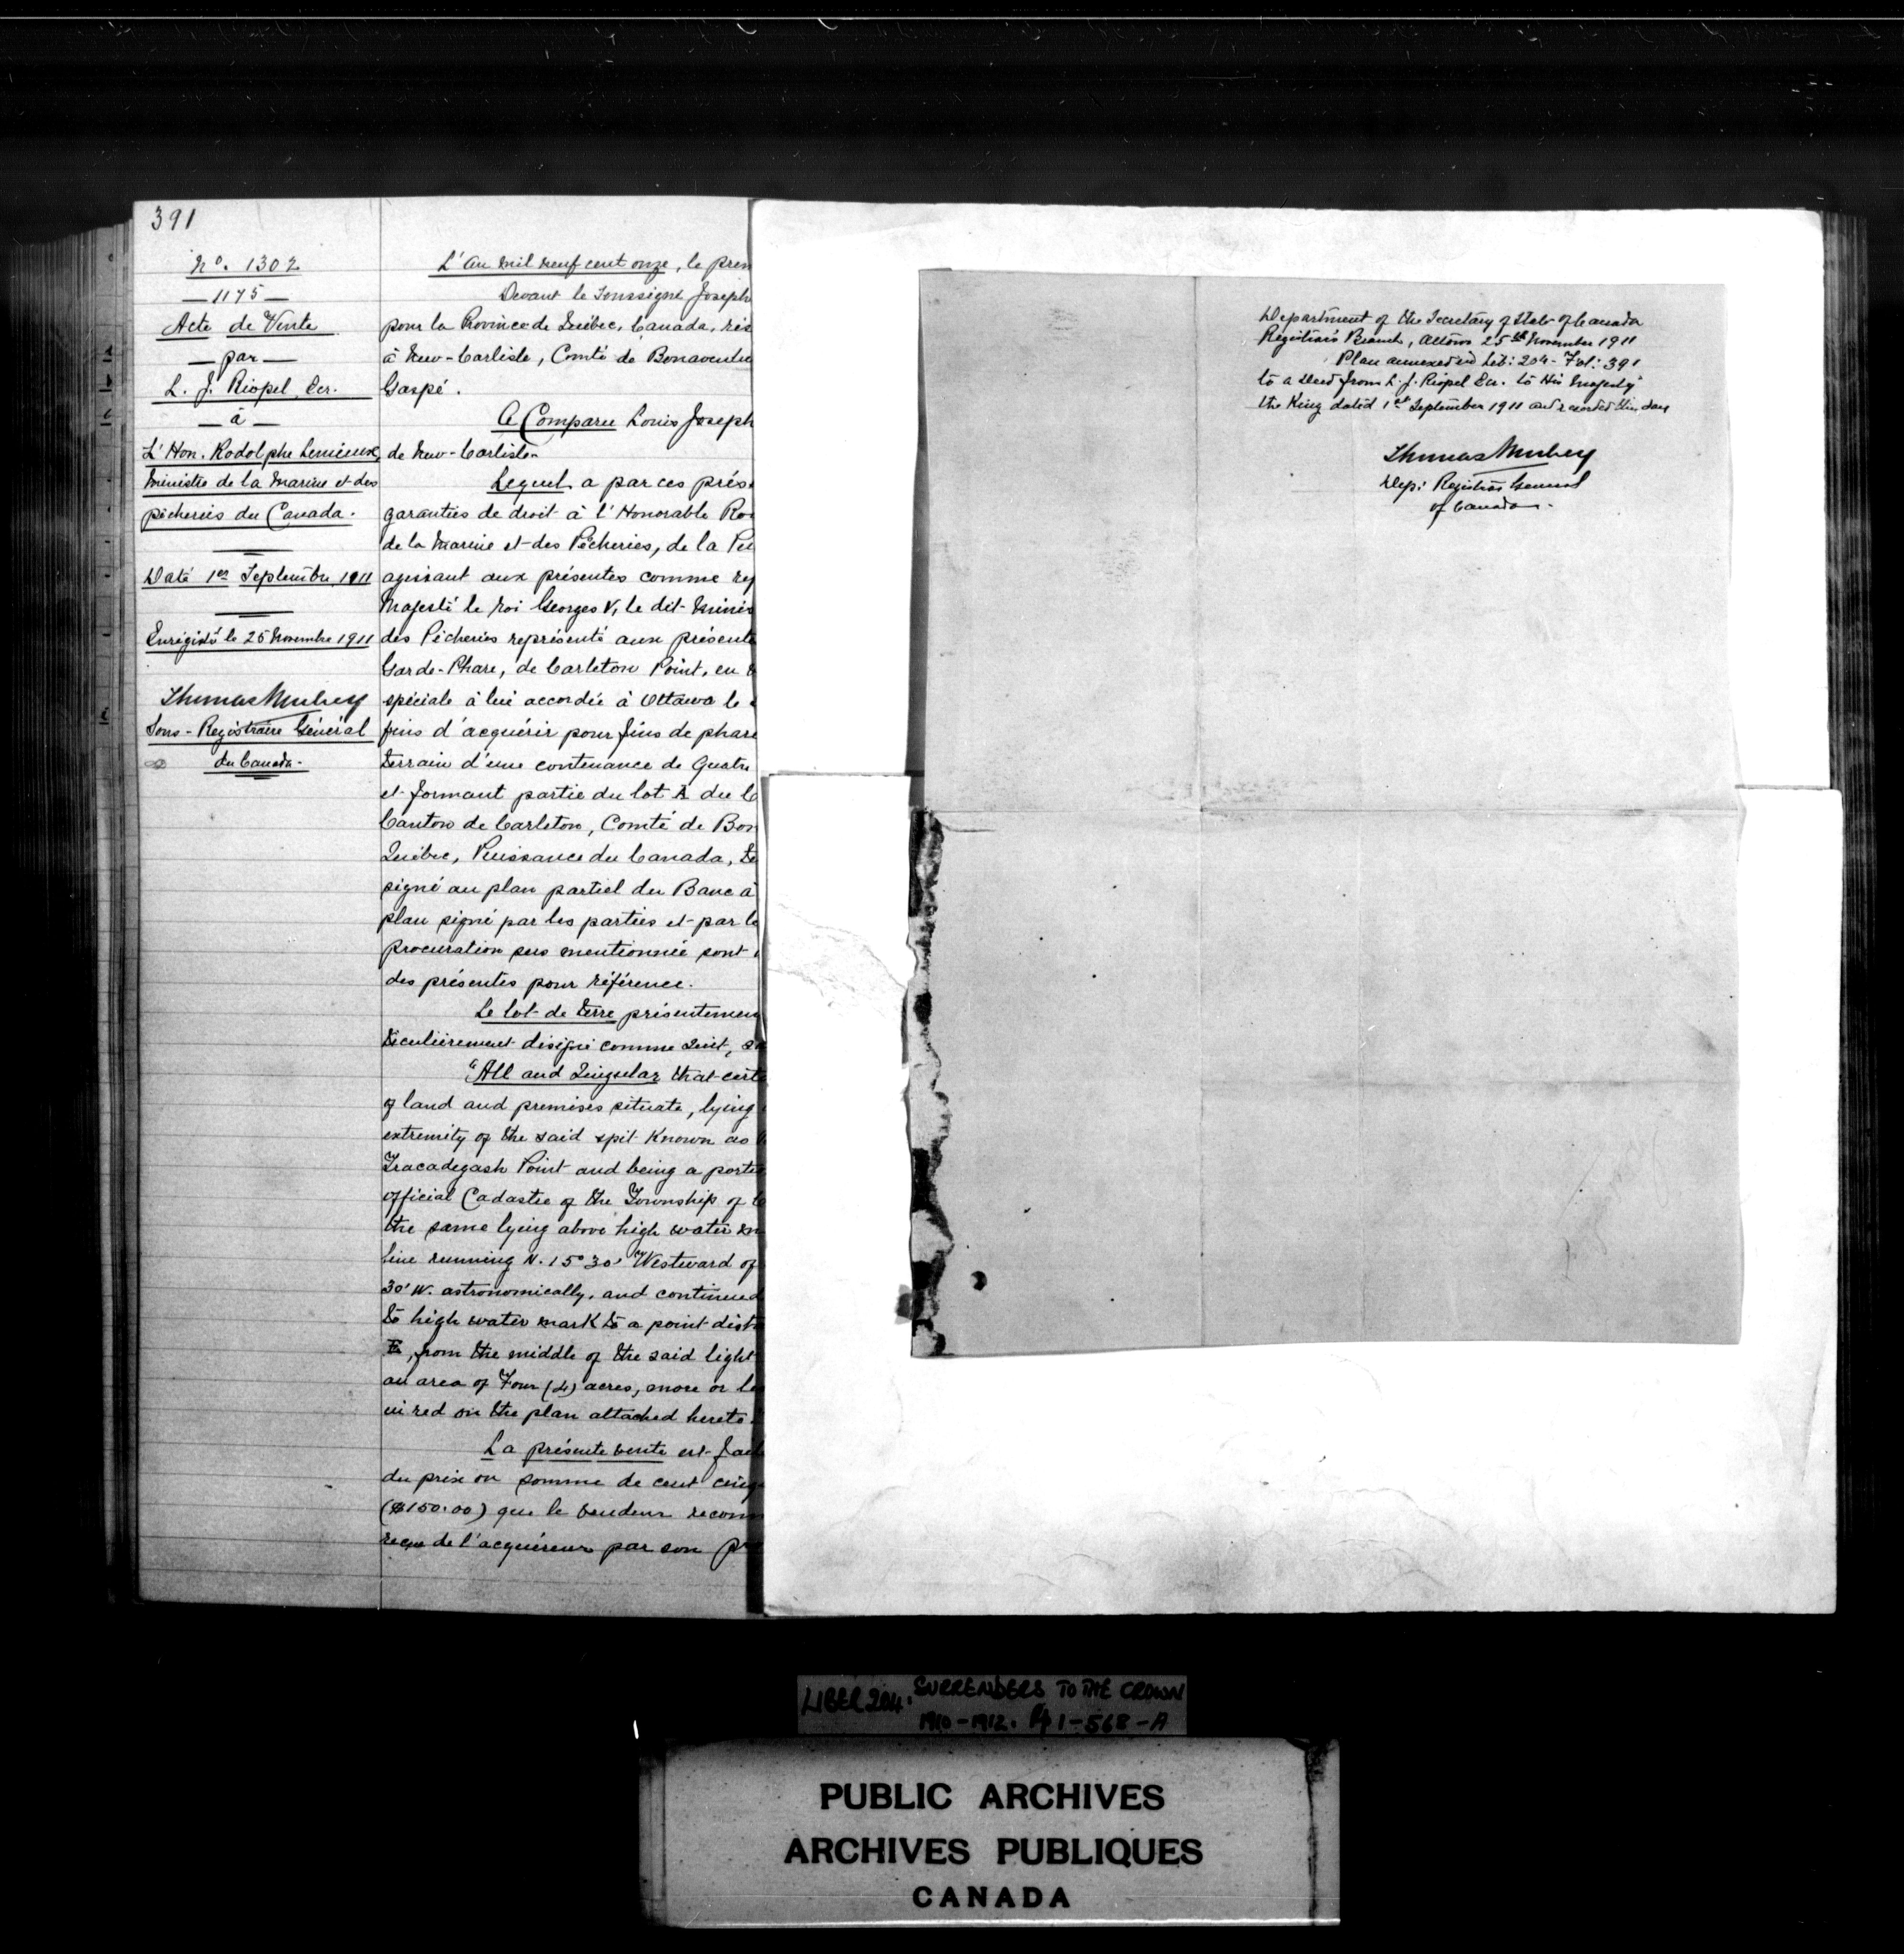 391
No. 1302
— 1175 —
Acte de Vente
— par —
L. J. Riopel, Ecr.
— à —
L'Hon. Rodolphe Lemieux,
Ministre de la Marine et des
pêcheries du Canada.
Daté 1er Septembre, 1911
Enrégistré le 25 Novembre 1911
Thomas Mulvey
Sous-Registraire Général
du Canada.
L'an mil neuf cent onze, le prem
Devant le Soussigné Joseph
pour la Province de Québec, Canada, rés
à New-Carlisle, Comté de Bonaventu
Gaspé.
A Comparu Louis Joseph
de New-Carlisle
Lequel a par ces prés
garanties de droit à l'Honorable Ro
de la Marine et des Pêcheries, de la Pu
agissant aux présentes comme rep
Majesté le roi Georges V, le dit Minis
des Pêcheries représenté aux présente
Garde-Phare, de Carleton Point, en
spéciale à lui accordée à Ottawa le
fins d'acquérir pour fins de phare
terrain d'une contenance de Quatre
et formant partie du lot A du
Canton de Carleton, Comté de Bon
Québec, Puissance du Canada, te
signé au plan partiel du Banc à
plan signé par les parties et par le
procuration sus mentionnée sont
des présentes pour référence.
Le lot de terre présentemen
ticulièrement désigné comme suit,
"All and Singular that cert
of land and premises situate, lying
extremity of the said spit known as
Tracadegash Point and being a porti
official Cadastre of the Township of
the same lying above high water
line running N. 15° 30' Westward of
30' W. astronomically, and continued
to high water mark to a point dist
E, from the middle of the said light
an area of Four (4) acres, more or le
in red on the plan attached hereto
La présente vente est fait
du prix ou somme de cent cinq
($150.00) que le vendeur reconn
reçue de l'acquéreur par son
Department of the Secretary of State of Canada
Registrar's Branch, Ottawa 25th November 1911
Plan annexed in Lib: 204 - Fol: 391
to a Deed from L. J. Riopel Ecr. to His Majesty
the King dated 1st September 1911 and recorded this day
Thomas Mulvey
Dep: Registrar General
of Canada.
LIBER 204. SURRENDERS TO THE CROWN
1910-1912. P 1-568-A
PUBLIC ARCHIVES
ARCHIVES PUBLIQUES
CANADA